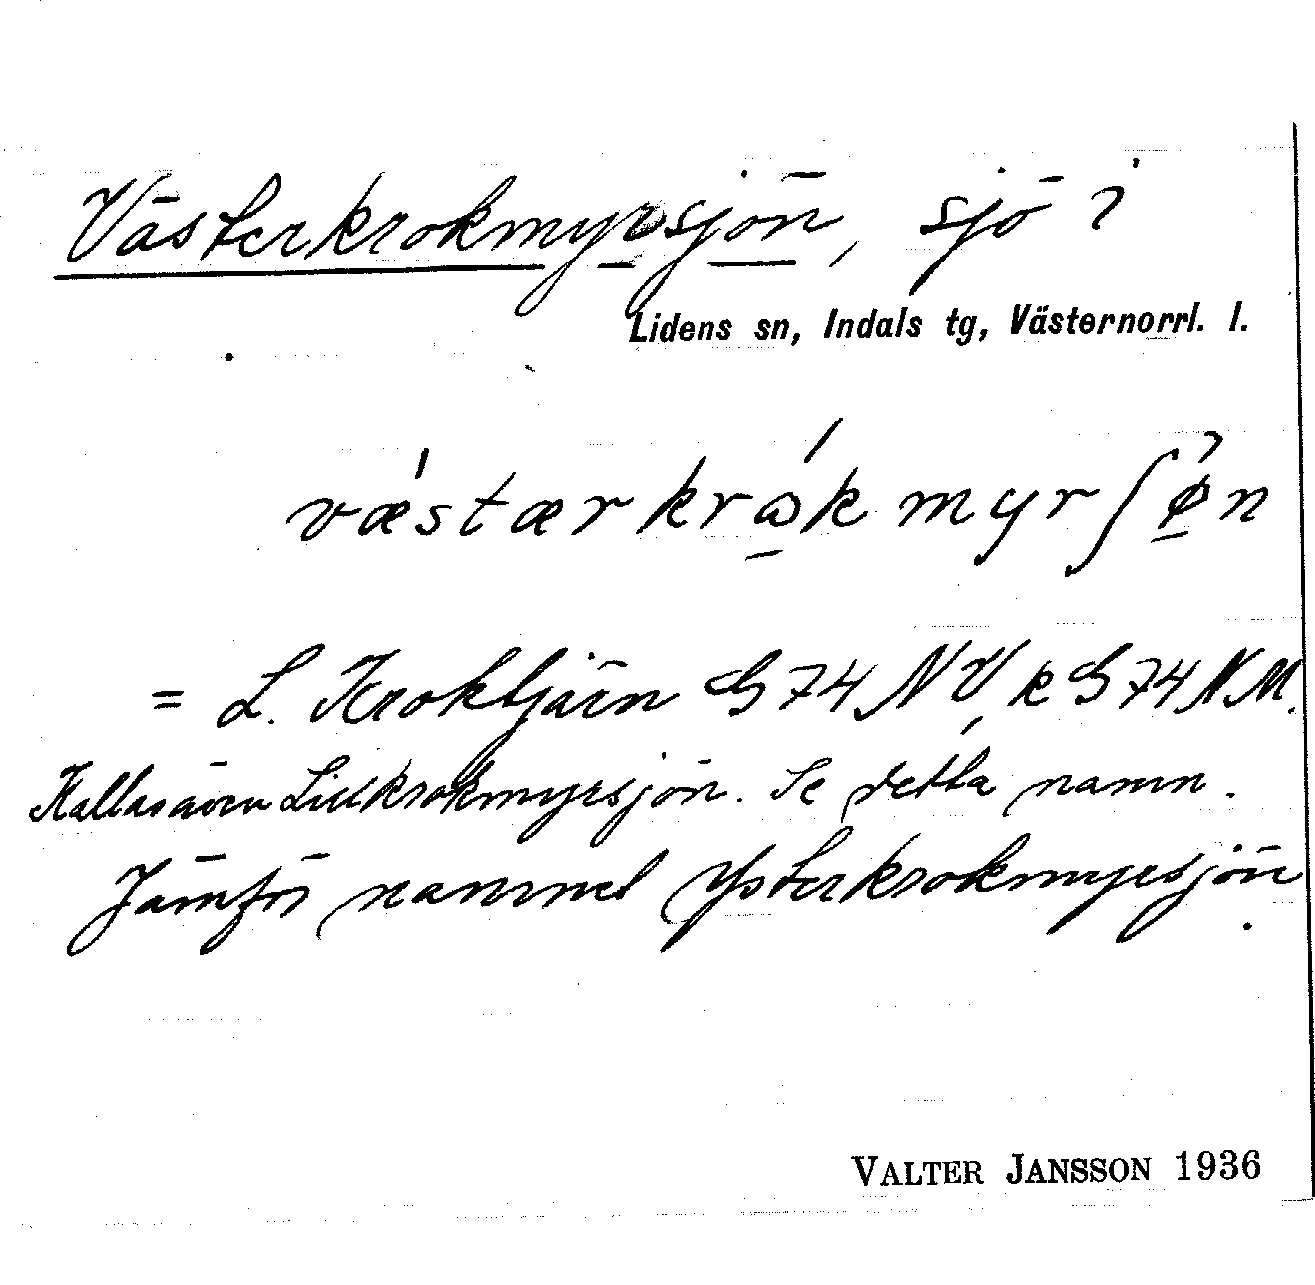 Västerkrokmyrsjön, sjö i
Lidens sn, Indals tg, Västernorrl. l.
vǽstærkrώ̱kmyrʃø̱̀n
= L. Kroktjärn G 74 NV, k G 74 NM.
Kallas även Lillkrokmyrsjön. Se detta namn.
Jämför namnet Ysterkrokmyrsjön.
VALTER JANSSON 1936